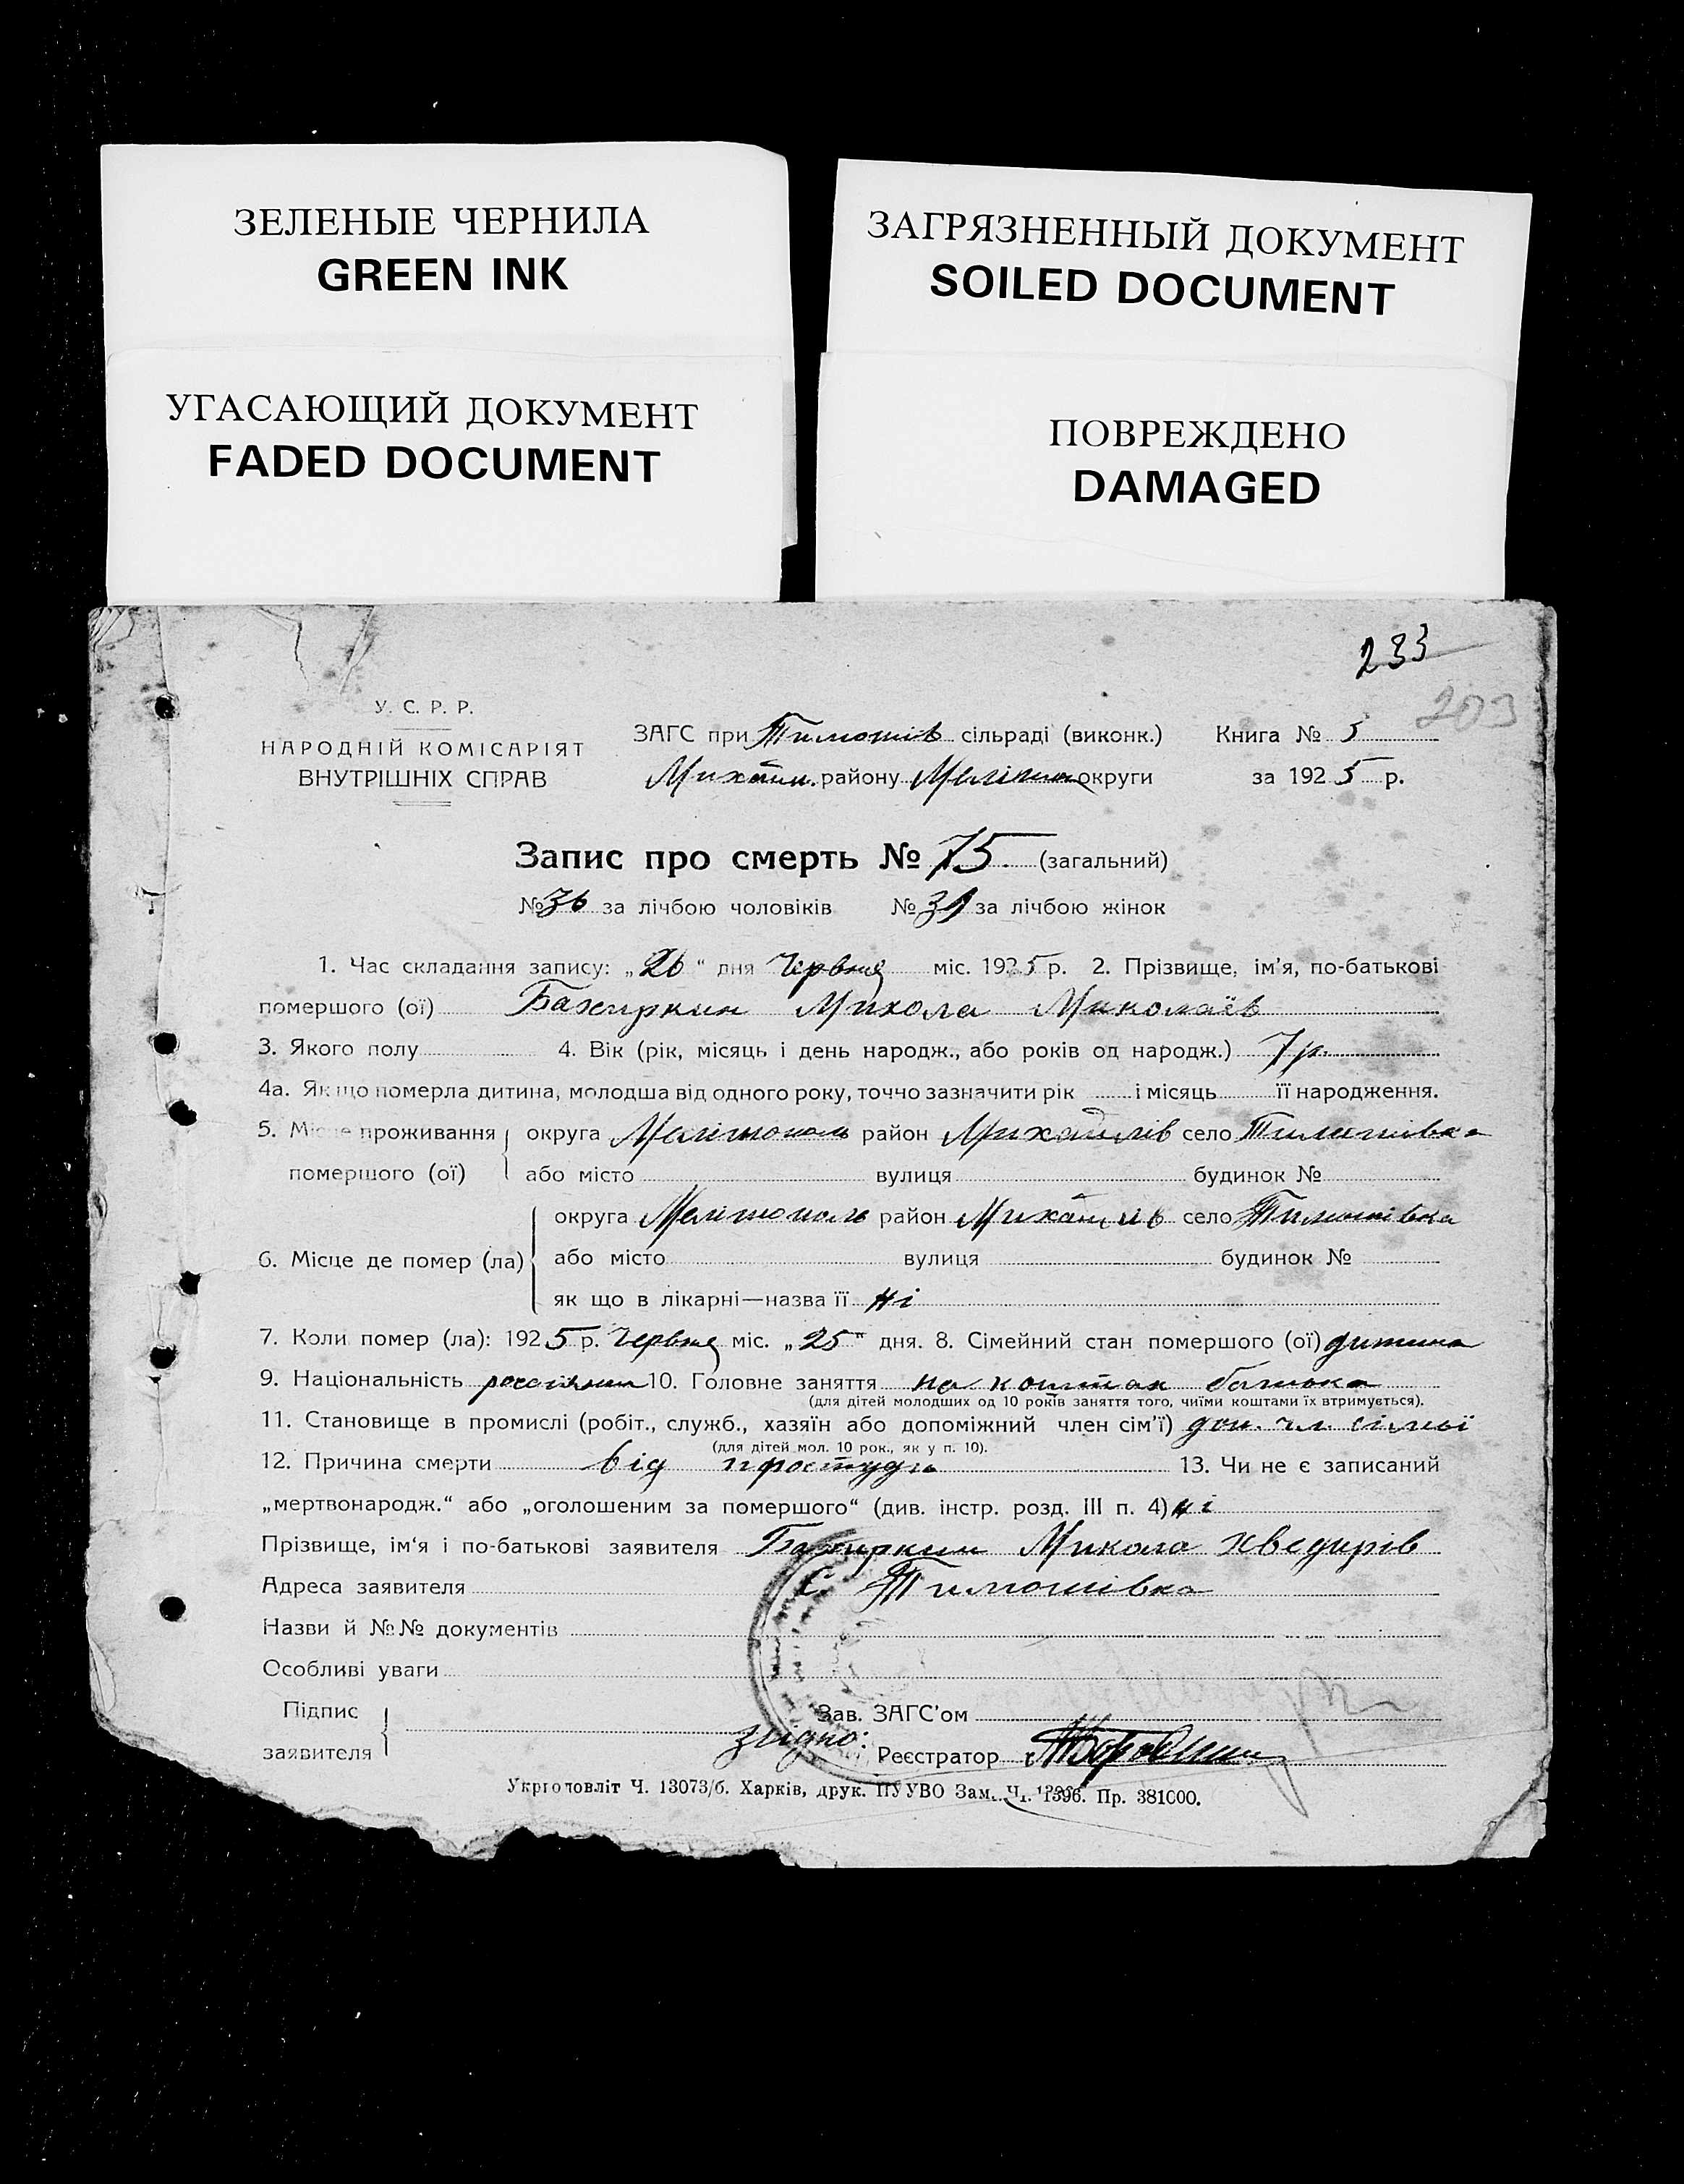 ЗЕЛЕНЫЕ ЧЕРНИЛА
GREEN INK
ЗАГРЯЗНЕННЫЙ ДОКУМЕНТ
SOILED DOCUMENT
УГАСАЮЩИЙ ДОКУМЕНТ
FADED DOCUMENT
ПОВРЕЖДЕНО
DAMAGED
233
203
У. С. Р. Р.
НАРОДНІЙ КОМІСАРІЯТ
ВНУТРІШНІХ СПРАВ
ЗАГС при Тимошів сільраді (виконк.) Книга № 5
Михайл. району Меліт округи за 1925 р.
Запис про смерть № 75 (загальний)
№ 36 за лічбою чоловіків № 39 за лічбою жінок
1. Час складання запису: „26“ дня Червня міс. 1925 р. 2. Прізвище, ім’я, по-батькові
помершого (ої) Бахиркин Микола Миколаїв
3. Якого полу 4. Вік (рік, місяць і день народж., або років од народж.) 7 р.
4а. Якщо померла дитина, молодша від одного року, точно зазначити рік і місяць її народження.
5. Місце проживання округа Мелітополь район Михайлів село Тимошівка
помершого (ої) або місто вулиця будинок №
округа Мелітополь район Михайлів село Тимошівка
6. Місце де помер (ла) або місто вулиця будинок №
як що в лікарні—назва її ні
7. Коли помер (ла): 1925 р. Червня міс. „25“ дня. 8. Сімейний стан помершого (ої) дитина
9. Національність россіянин 10. Головне заняття на коштах батька
(для дітей молодших од 10 років заняття того, чиїми коштами їх втримується).
11. Становище в промислі (робіт., служб., хазяїн або допоміжний член сім’ї) доп. чл. сімьї
(для дітей мол. 10 рок., як у п. 10).
12. Причина смерти від простуди 13. Чи не є записаний
„мертвонародж.“ або „оголошеним за помершого“ (див. інстр. розд. III п. 4) ні
Прізвище, ім‘я і по-батькові заявителя Бахиркин Микола Хведирів
Адреса заявителя С. Тимошівка
Назви й №№ документів
Особливі уваги
Підпис Зав. ЗАГС’ом
заявителя згідно: Реєстратор
Укрголовліт Ч. 13073/б. Харків, друк. ПУУВО Зам. Ч. 1396. Пр. 381000.